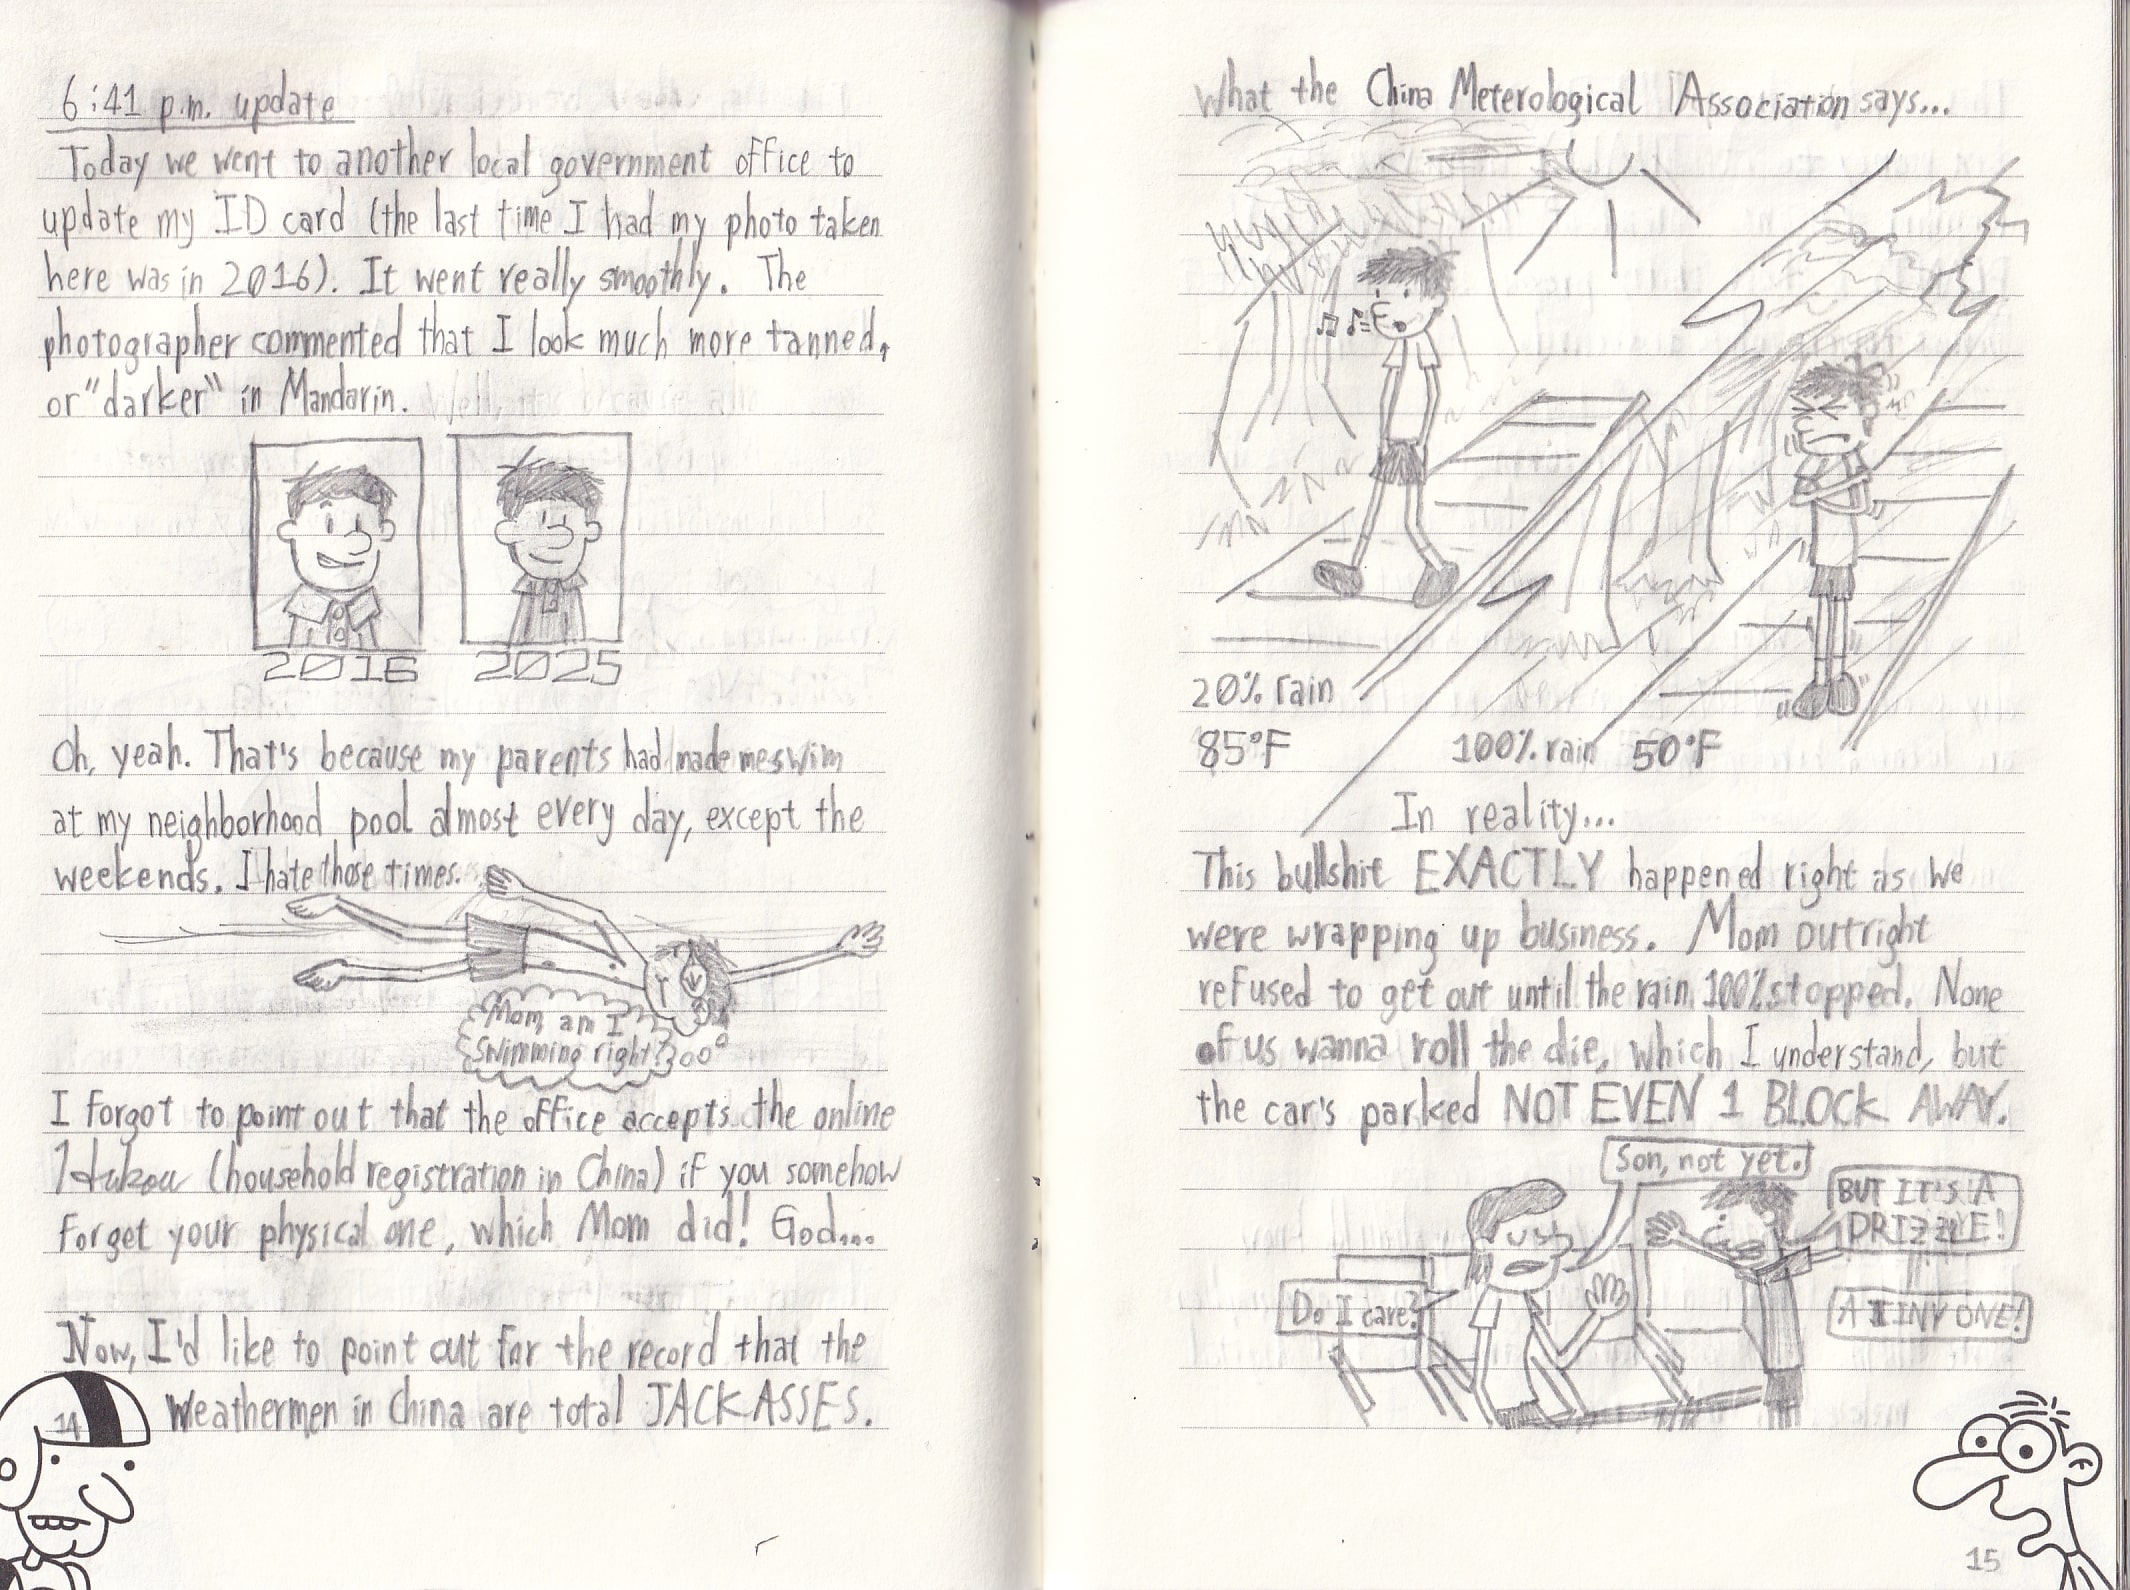 6:41 p.m. update
Today we went to another local government office to
update my ID card (the last time I had my photo taken
here was in 2016). It went really smoothly. The
photographer commented that I look much more tanned,
or "darker" in Mandarin.
2016 2025
Oh, yeah. That's because my parents had made me swim
at my neighborhood pool almost every day, except the
weekends. I hate those times.
Mom, am I
swimming right?
I forgot to point out that the office accepts the online
Hukou (household registration in China) if you somehow
forget your physical one, which Mom did! God...
Now, I'd like to point out for the record that the
Weathermen in China are total JACKASSES.
14
What the China Meterological Association says...
20% rain
85°F
100% rain 50°F
In reality...
This bullshit EXACTLY happened right as we
were wrapping up business. Mom outright
refused to get out until the rain 100% stopped. None
of us wanna roll the die, which I understand, but
the car's parked NOT EVEN 1 BLOCK AWAY.
Son, not yet.
BUT IT'S A
DRIZZLE!
Do I care?
A TINY ONE!
15